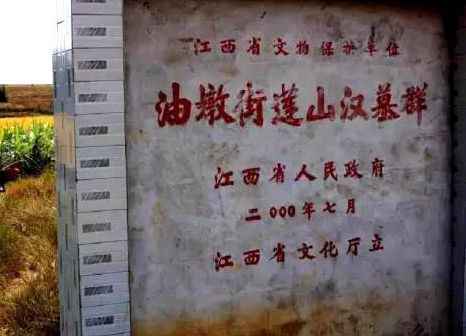 江西省文物保护单位
油墩街莲山汉墓群
江西省人民政府
二000年七月
江西省文化厅立